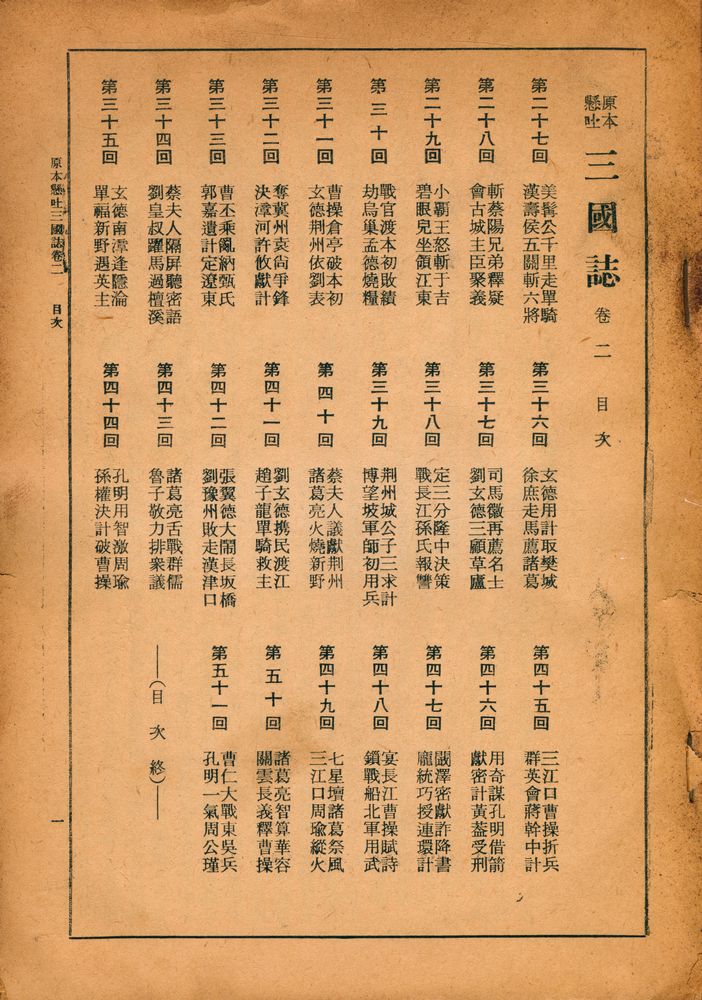 原本
懸吐
三國誌 卷二 目次
第二十七回
美髯公千里走單騎
漢壽侯五關斬六將
第二十八回
斬蔡陽兄弟釋疑
會古城主臣聚義
第二十九回
小覇王怒斬于吉
碧眼兒坐領江東
第三十回
戰官渡本初敗績
劫烏巢孟德燒糧
第三十一回
曹操倉亭破本初
玄德荆州依劉表
第三十二回
奪冀州袁尙爭鋒
決漳河許攸獻計
第三十三回
曹丕乘亂納甄氏
郭嘉遺計定遼東
第三十四回
蔡夫人隔屏聽密語
劉皇叔躍馬過檀溪
第三十五回
玄德南漳逢隱淪
單福新野遇英主
第三十六回
玄德用計取樊城
徐庶走馬薦諸葛
第三十七回
司馬徽再薦名士
劉玄德三顧草廬
第三十八回
定三分隆中決策
戰長江孫氏報讐
第三十九回
荆州城公子三求計
博望坡軍師初用兵
第四十回
蔡夫人議獻荆州
諸葛亮火燒新野
第四十一回
劉玄德携民渡江
趙子龍單騎救主
第四十二回
張翼德大鬧長坂橋
劉豫州敗走漢津口
第四十三回
諸葛亮舌戰群儒
魯子敬力排衆議
第四十四回
孔明用智激周瑜
孫權決計破曹操
第四十五回
三江口曹操折兵
群英會蔣幹中計
第四十六回
用奇謀孔明借箭
獻密計黃蓋受刑
第四十七回
闞澤密獻詐降書
龐統巧授連環計
第四十八回
宴長江曹操賦詩
鎖戰船北軍用武
第四十九回
七星壇諸葛祭風
三江口周瑜縱火
第五十回
諸葛亮智算華容
關雲長義釋曹操
第五十一回
曹仁大戰東吳兵
孔明一氣周公瑾
——(目次終)——
原本懸吐三國誌卷二 目次
一